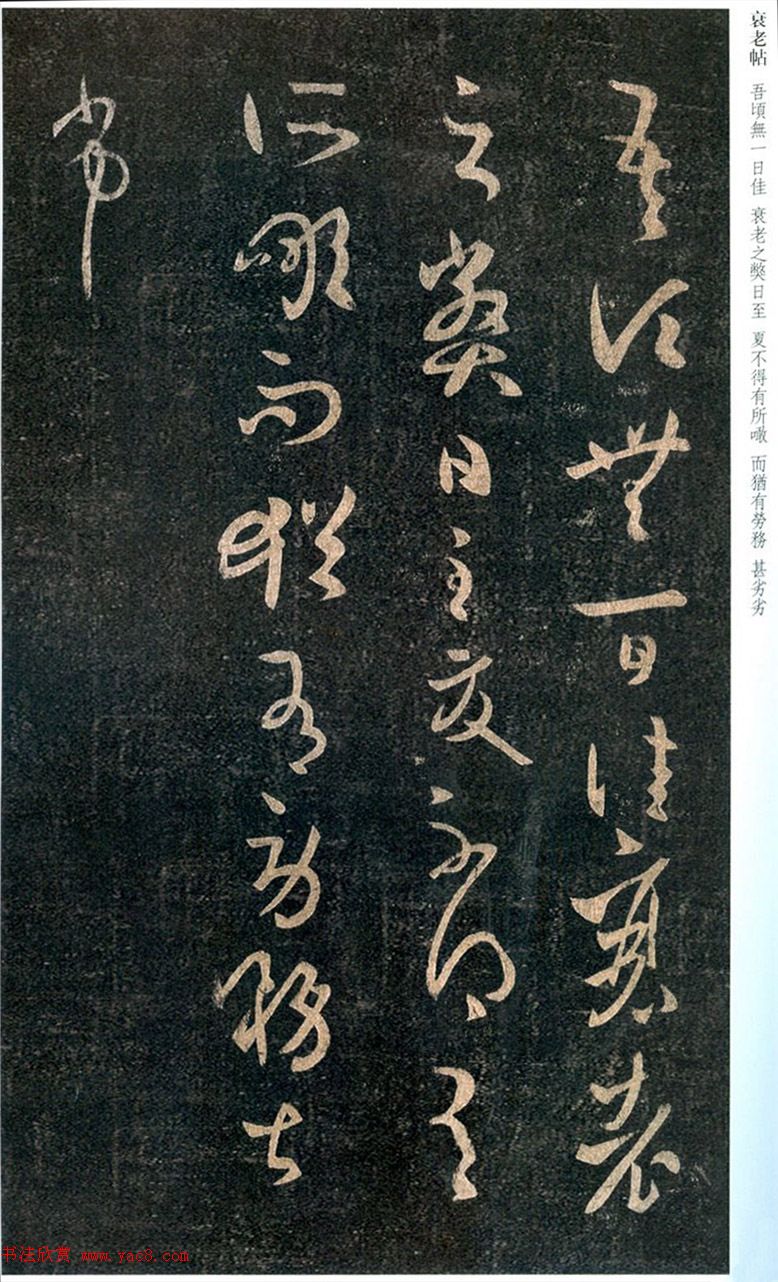 衰老帖 吾頃無一日佳 衰老之弊日至 夏不得有所噉 而猶有勞務 甚劣劣
吾頃無一日佳衰老
之弊日至夏不得有
所噉而猶有勞務甚
劣〻
书法欣赏 www.yac8.com